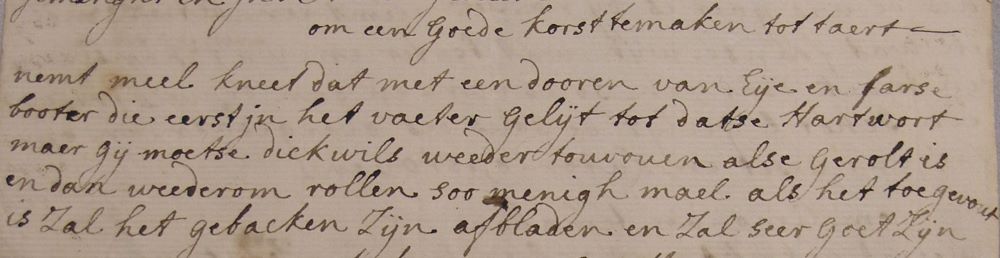 om een Goede korst temaken tot taert
nemt meel kneet dat met een dooren van Eije en farse
booter die eerst jn het vaeter Gelijt tot datse Hart wort
maer gij moetse dickwils weeder touvouen alse Gerolt is
en dan weederom rollen soo menigh mael als het toe gevout
is Zal het gebacken Zijn afbladen en Zal seer Goet Zijn